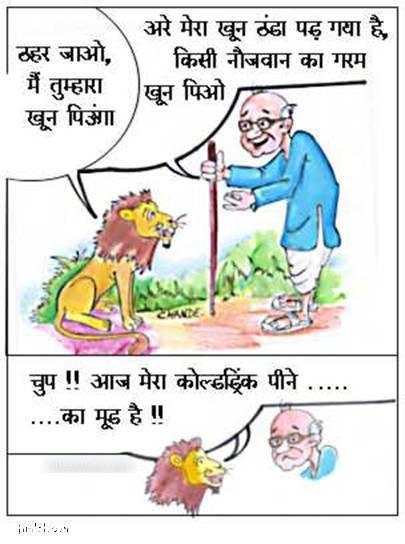 ठहर जाओ,
मैं तुम्हारा
खून पिऊंगा
अरे मेरा खून ठंढा पड़ गया है,
किसी नौजवान का गरम
खून पिओ
CHANDE
चुप !! आज मेरा कोल्डड्रिंक पीने .....
....का मूड है !!